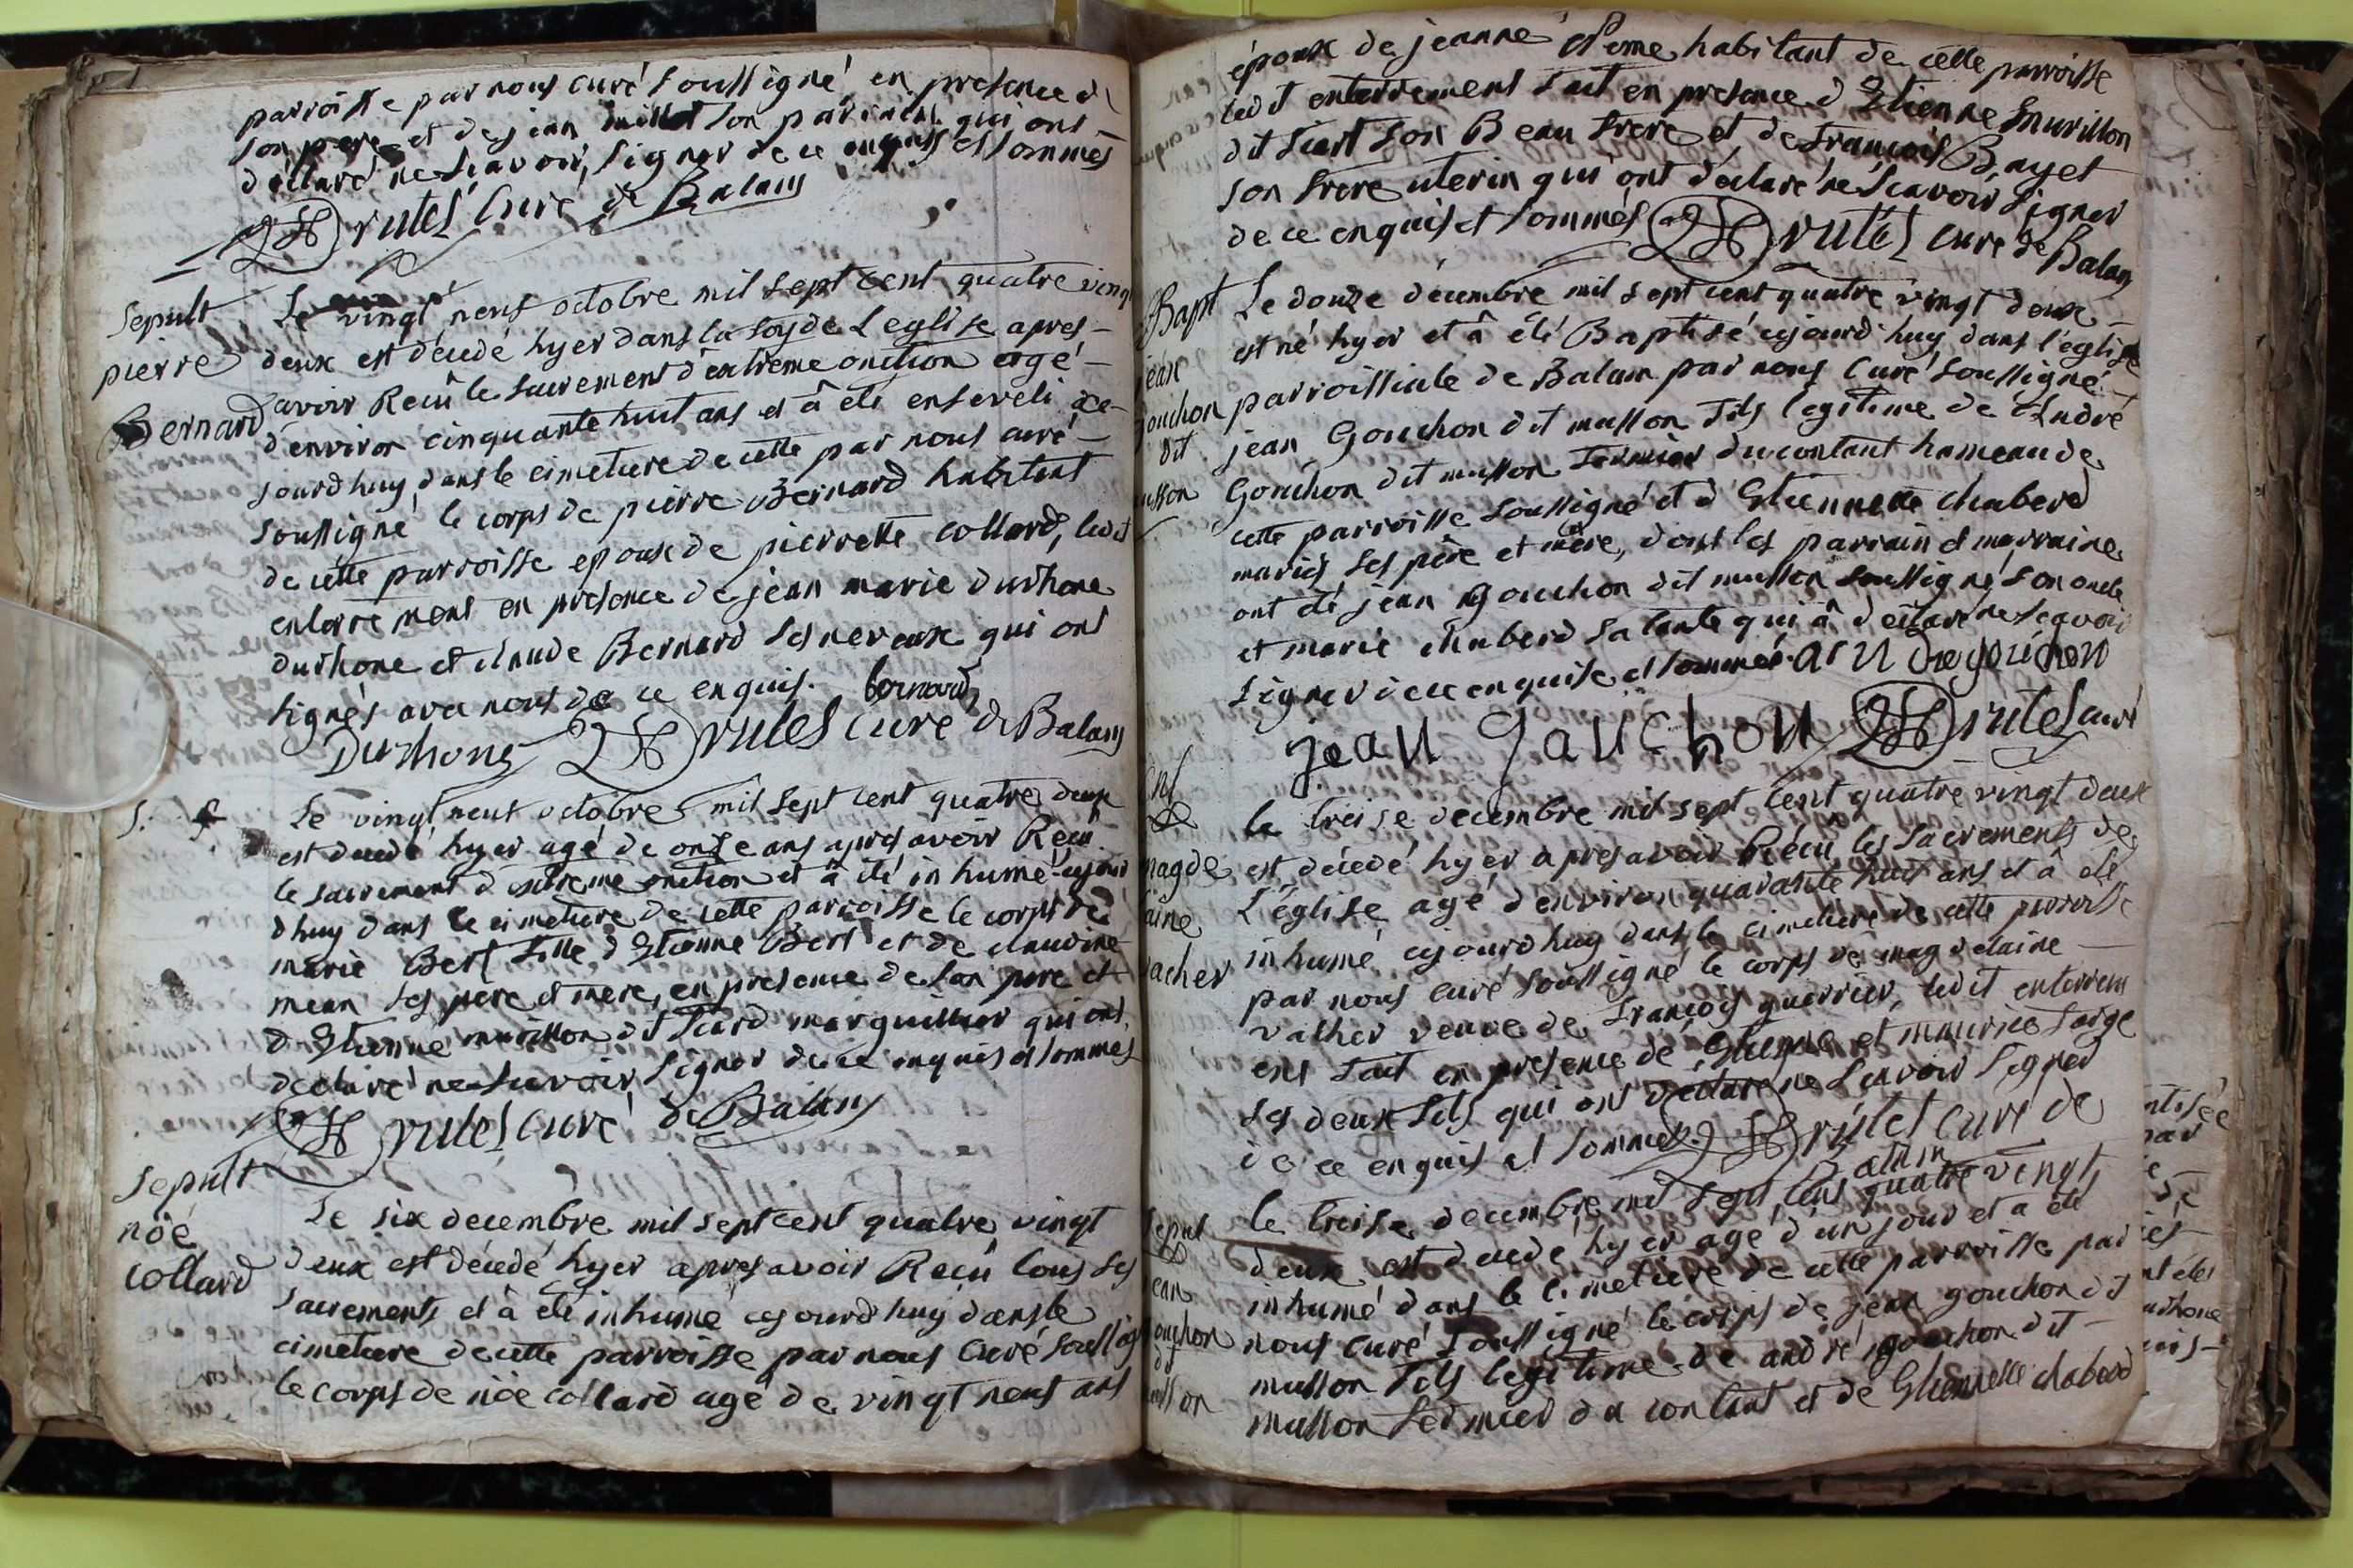 parroisse par nous curé soussigné, en presence de
son pere et de jean millet son parrain qui ont
déclaré ne scavoir signer de ce enquis et sommés
Brutel Curé de Balan
Sepult
pierre
Bernard
Le vingt neuf octobre mil sept cent quatre vingt
deux est décédé hyer dans la foy de L'eglise apres
avoir Reçû le sacrement d'extreme onction agé
d'environ cinquante huit ans et â été enseveli ce
jourdhuy dans le cimetiere de cette par nous curé
soussigné le corps de pierre Bernard habitant
de cette parroisse epoux de pierrette collard, ledit
enterrement en presence de jean marie durhone
durhone et claude Bernard ses neveux qui ont
signés avec nous de ce enquis. bernard
Durhone Brutel Curé de Balan
S. f.
Le vingt neuf octobre mil sept cent quatre deux
est decedé hyer agé de onze ans apres avoir Reçu
le sacrement d'extreme onction et â été inhumé cejour
dhuy dans le cimetiere de cette parroisse le corps de
marie Bert fille d'Etienne Bert et de claudine
mean ses pere et mere, en presence de son pere et
d'Etienne murillon dit siard marguillier qui ont
declaré ne scavoir signer de ce enquis et sommés
Brutel Curé de Balan
Sepult
nöé
collard
Le six decembre mil sept cent quatre vingt
deux est décédé hyer apres avoir Reçu tous ses
sacrements et â été inhumé cejourdhuy dans le
cimetiere de cette parroisse par nous Curé soussigné
le corps de nöe collard agé de vingt neuf ans
époux de jeanne habitant de cette parroisse
ledit enterrement fait en presence d'Etienne murillon
dit siart son Beau frere et de francois Bayet
son frere uterin qui ont déclaré ne scavoir signer
de ce enquis et sommés Brutel curé de Balan
Bapt
jean
gouchon
dit
musson
Le douze décembre mil sept cent quatre vingt deux
est né hyer et â été Baptisé cejourd'huy dans l'église
parroissiale de Balan par nous Curé soussigné
jean Gouchon dit musson fils legitime de André
Gouchon dit musson fermier du contant hameau de
cette parroisse soussigné et d'Etiennette chaberd
mariés ses père et mère, dont les parrain et marraine
ont été jean gouchon dit musson soussigné son oncle
et marie chaberd sa tante qui â déclaré ne scavoir
signer de ce enquise et sommée. andre gouchon
jean gauchon Brutel curé
magde
laine
vacher
le treise decembre mil sept cent quatre vingt deux
est décédé hyer apres avoir Récu les sacrements de
L'église agé d'environ quarante huit ans et â été
inhumé cejourdhuy dans le cimetiere de cette parroisse
par nous curé soussigné le corps de magdelaine
vacher veuve de francois guerrier, ledit enterrem
ent fait en presence de Etienne et maurice farge
ses deux fils qui ont déclaré ne scavoir signer
de ce enquis et sommés. Brutel curé de
Balan
Sepult
jean
gouchon
dit
musson
le treise decembre mil sept cent quatre vingt
deux est decedé hyer agé d'un jour et a été
inhumé dans le cimetiere de cette parroisse par
nous curé soussigné le corps de jean gouchon dit
musson fils legitime de andré gouchon dit
musson fermier du contant et de Etiennette chaberd